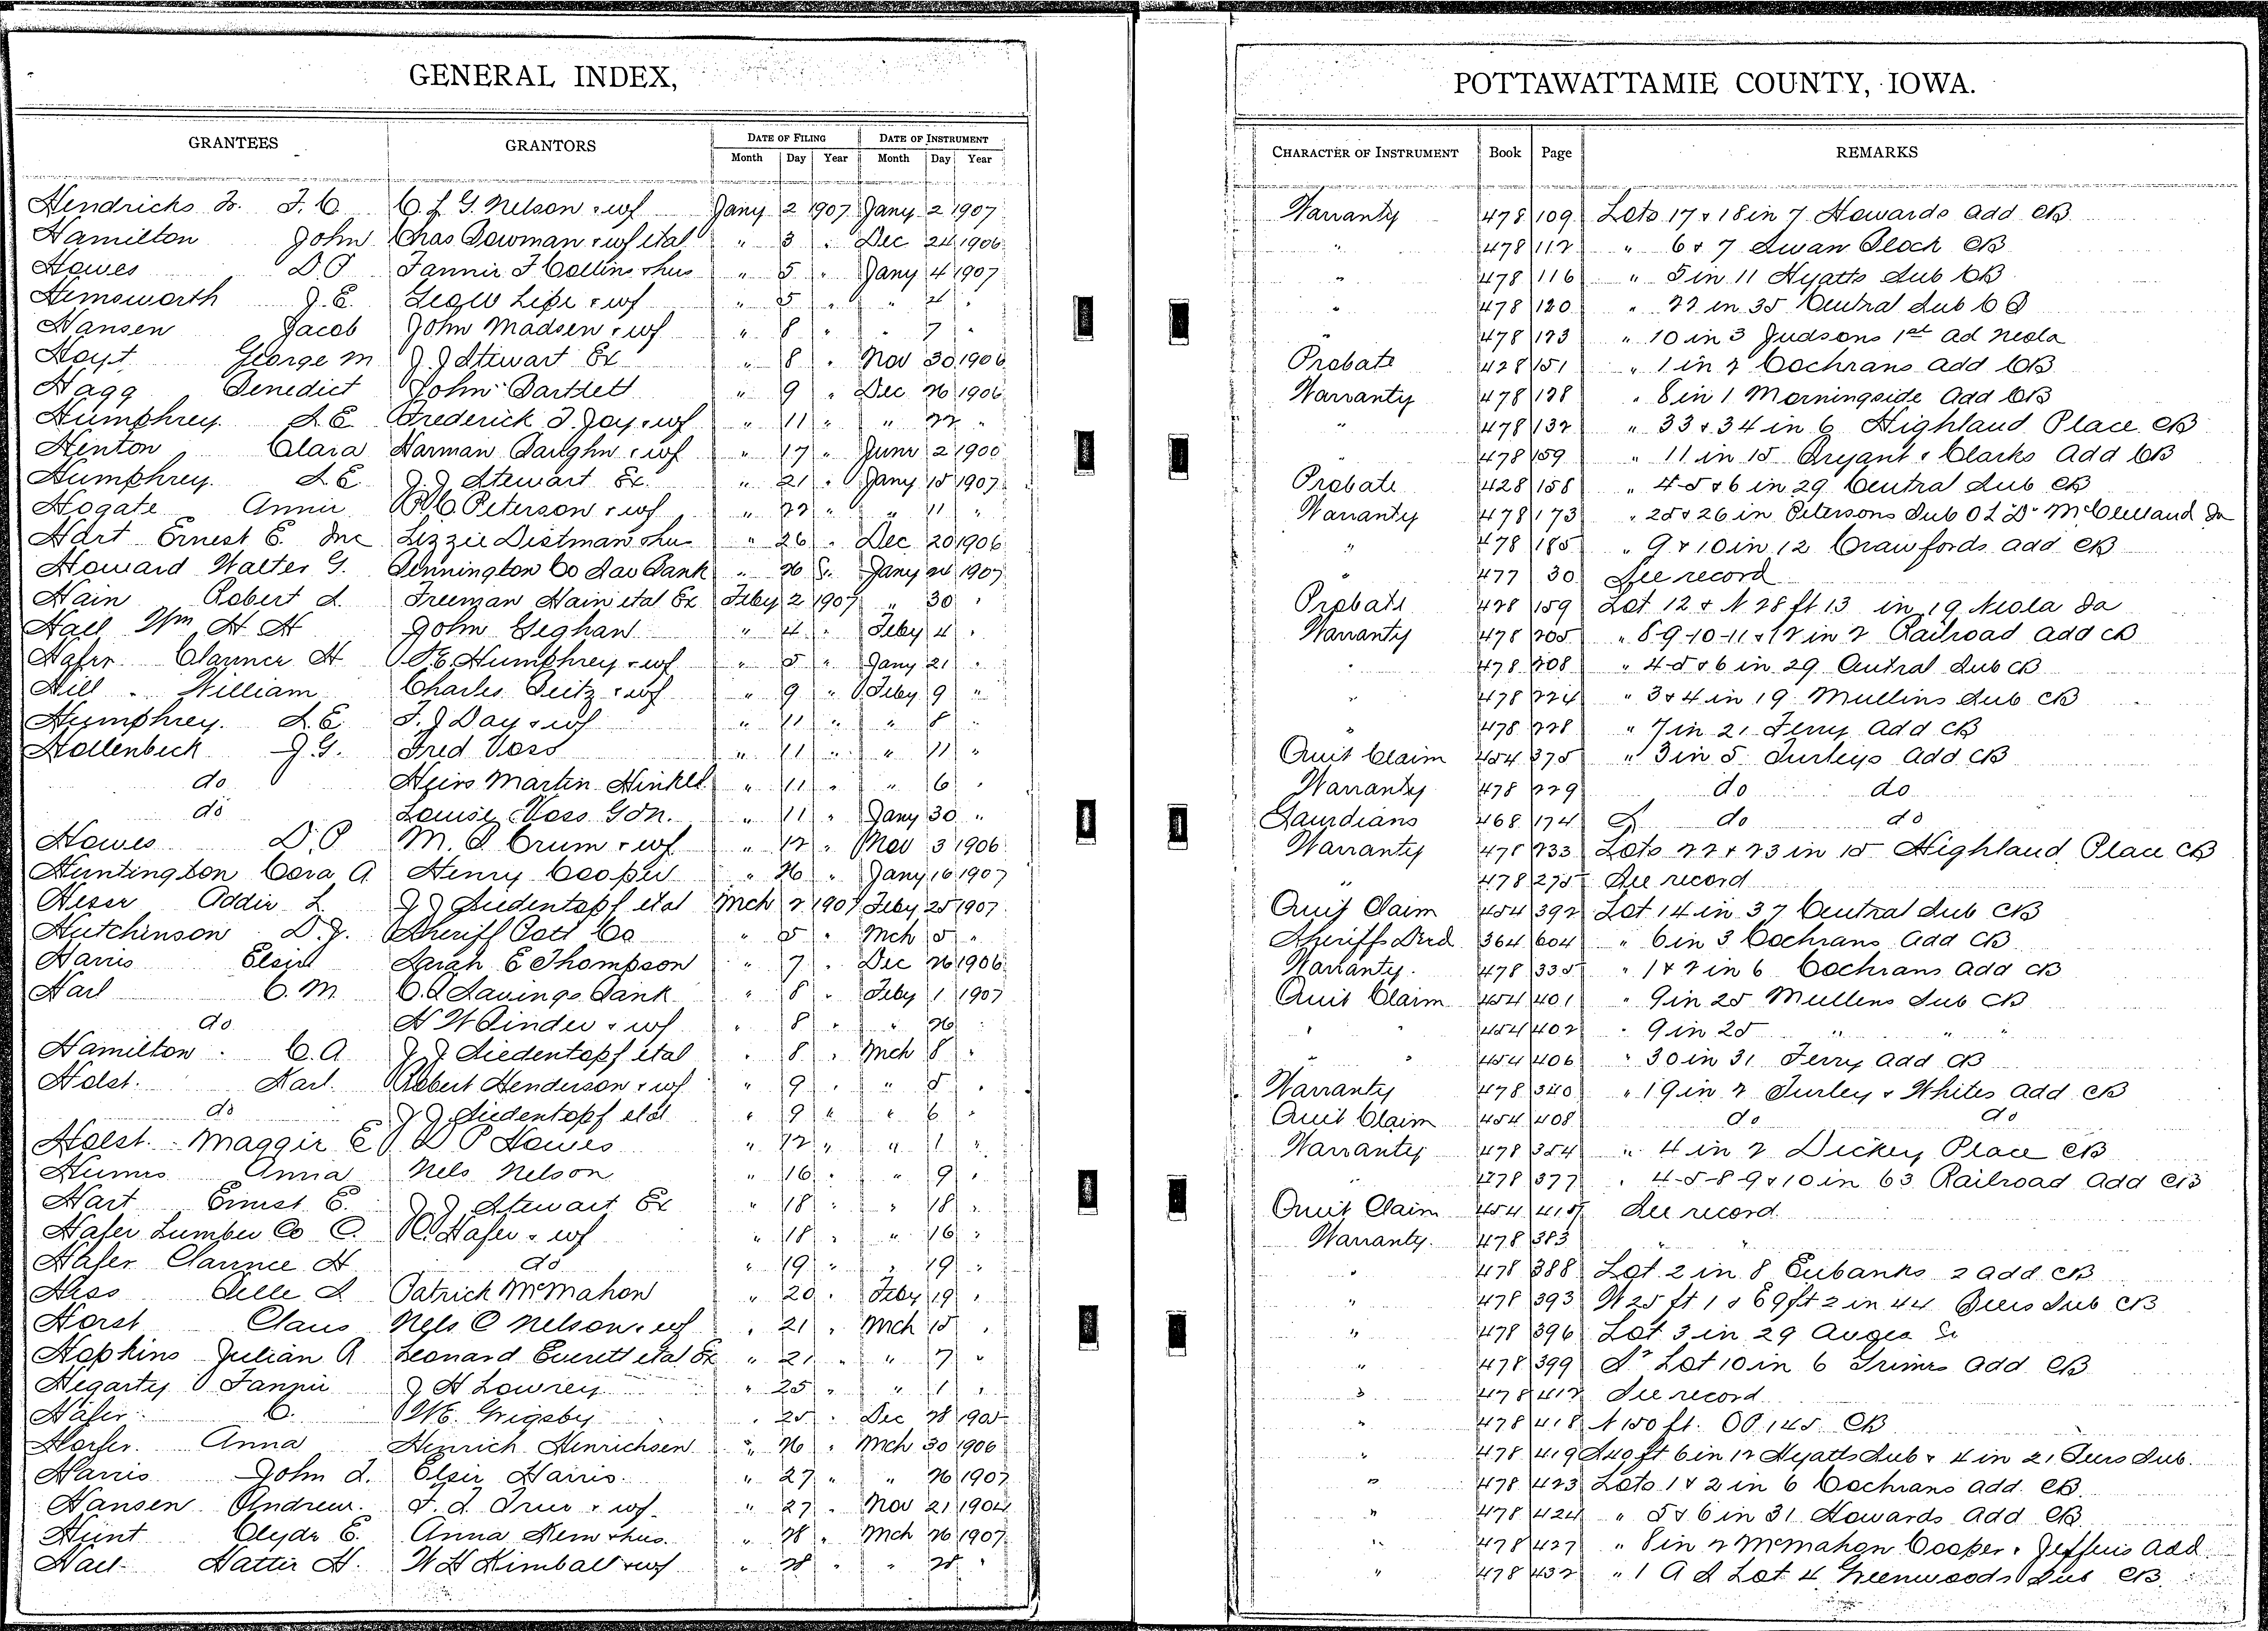 GENERAL INDEX,
GRANTEES GRANTORS DATE OF FILING DATE OF INSTRUMENT
Month Day Year Month Day Year
Hendricks Jr. F. C. C. J. G. Nelson & wf Jany 2 1907 Jany 2 1907
Hamilton John Chas Bowman & wf etal " 3 " Dec 24 1906
Howes D P Fannie F Collins & hus " 5 " Jany 4 1907
Hemsworth J. E. Leo W Life & wf " 5 " " 4 "
Hansen Jacob John Madsen & wf " 8 " " 7 "
Hoyt George M J. J Stewart Ex " 8 " Nov 30 1906
Hagg Benedict John Bartlett " 9 " Dec 26 1906
Humphrey S E Frederick J. Day & wf " 11 " " 22 "
Henton Clara Harman Baughn & wf " 17 " June 2 1900
Humphrey. S E J. J Stewart Ex. " 21 " Jany 15 1907
Hogate Annie P C Peterson & wf " 22 " " 11 "
Hart Ernest E. Inc Lizzie Dietman & hus " 26 " Dec 20 1906
Howard Walter G. Pennington Co Sav Bank " 26 " Jany 24 1907
Hain Robert L. Freeman Hain etal Ex Feby 2 1907 " 30 "
Hall Wm H H John Geghan " 4 " Feby 4 "
Hafer Clarence H S. E. Humphrey & wf " 5 " Jany 21 "
Hill William Charles Beitz & wf " 9 " Feby 9 "
Humphrey. S. E. F. J Day & wf " 11 " " 8 "
Hollenbeck J. G. Fred Voss " 11 " " 11 "
do Heirs Martin Hinkel " 11 " " 6 "
do Louise Voss Gdn. " 11 " Jany 30 "
Howes D. P M. S Crum & wf " 12 " Nov 3 1906
Huntington Cora A Henry Cooper " 26 " Jany 16 1907
Heser Addie L J J Siedentopf etal Mch 2 1907 Feby 25 1907
Hutchinson D. J. Sheriff Pott Co " 5 " Mch 5 "
Harris Elsie Sarah E Thompson " 7 " Dec 26 1906
Harl C. M C. B Savings Bank " 8 " Feby 1 1907
do N W Binder & wf " 8 " " 26 "
Hamilton C. A J J Siedentopf etal " 8 " Mch 8 "
Holst. Karl. Robert Henderson & wf " 9 " " 5 "
do J J Siedentopf etal " 9 " " 6 "
Holst. Maggie E D P Howes " 12 " " 1 "
Humes Anna Nels Nelson " 16 " " 9 "
Hart Ernest E. J J Stewart Ex " 18 " " 18 "
Hafer Lumber Co C. C. Hafer & wf " 18 " " 16 "
Hafer Clarence H do " 19 " " 19 "
Hess Belle S Patrick McMahon " 20 " Feby 19 "
Horst Claus Nels O Nelson & wf " 21 " Mch 15 "
Hopkins Julian A Leonard Everett etal Ex " 21 " " 7 "
Hegarty Fannie J H Lowrey " 25 " " 1 "
Hafer C. W E. Grigsby " 25 " Dec 28 1905
Anna Heinrich Hinrichsen " 26 " Mch 30 1906
Harris John L. Elsie Harris " 27 " " 26 1907
Hansen Andrew. F. L. True & wf. " 27 " Nov 21 1904
Hunt Clyde E. Anna Rew & hus. " 28 " Mch 26 1907
Hall Hattie H. W H Kimball & wf " 28 " " 28 "
POTTAWATTAMIE COUNTY, IOWA.
CHARACTER OF INSTRUMENT Book Page REMARKS
Warranty 478 109 Lots 17 & 18 in 7 Howards add CB
" 478 112 " 6 & 7 Swan Block CB
" 478 116 " 5 in 11 Hyatts Sub CB
" 478 120 " 22 in 35 Central Sub C B
" 478 123 " 10 in 3 Judsons 1st ad Neola
Probate 428 151 " 1 in 2 Cochrans add CB
Warranty 478 128 " 8 in 1 Morningside add CB
" 478 132 " 33 & 34 in 6 Highland Place CB
" 478 159 " 11 in 15 Bryant & Clarks add CB
Probate 428 158 " 4-5 & 6 in 29 Central Sub CB
Warranty 478 173 " 25 & 26 in Petersons Sub O L D McClelland Ia
" 478 185 " 9 & 10 in 12 Crawfords add CB
" 477 30 See record
Probate 428 159 Lot 12 & N 28 ft 13 in 19 Neola Ia
Warranty 478 205 " 8-9-10-11 & 12 in 2 Railroad add CB
" 478 208 " 4-5 & 6 in 29 Central Sub CB
" 478 224 " 3 & 4 in 19 Mullins Sub CB
" 478 228 " 7 in 21 Ferry add CB
Quit Claim 454 375 " 3 in 5 Turleys add CB
Warranty 478 229 do do
Gaurdians 468 174 do do
Warranty 478 233 Lots 22 & 23 in 15 Highland Place CB
" 478 275 See record
Quit Claim 454 392 Lot 14 in 37 Central Sub CB
Sheriffs Deed 364 604 " 6 in 3 Cochrans add CB
Warranty. 478 335 " 1 & 2 in 6 Cochrans add CB
Quit Claim 454 401 " 9 in 25 Mullens Sub CB
" " 454 402 " 9 in 25 " " "
" " 454 406 " 30 in 31 Ferry add CB
Warranty 478 340 " 19 in 2 Turley & Whites add CB
Quit Claim 454 408 do do
Warranty 478 354 " 4 in 2 Dickey Place CB
" 478 377 " 4-5-8-9 & 10 in 63 Railroad add CB
Quit Claim 454 415 See record
Warranty. 478 383 " "
" 478 388 Lot 2 in 8 Eubanks 2 add CB
" 478 393 W 25 ft 1 & E 9 ft 2 in 44 Beers Sub CB
" 478 396 Lot 3 in 29 Avoca Ia
" 478 399 Lot 10 in 6 Grimes add CB
" 478 412 See record
" 478 418 N 150 ft. OP 145 CB
" 478 419 S 40 ft 6 in 12 Hyatts Sub & 4 in 21 Beers Sub.
" 478 423 Lots 1 & 2 in 6 Cochrans add. CB.
" 478 424 " 5 & 6 in 31 Howards add CB.
" 478 427 " 8 in 2 McMahon Cooper & Jefferis add
" 478 432 " 1 A S Lot 4 Greenwoods Sub CB.